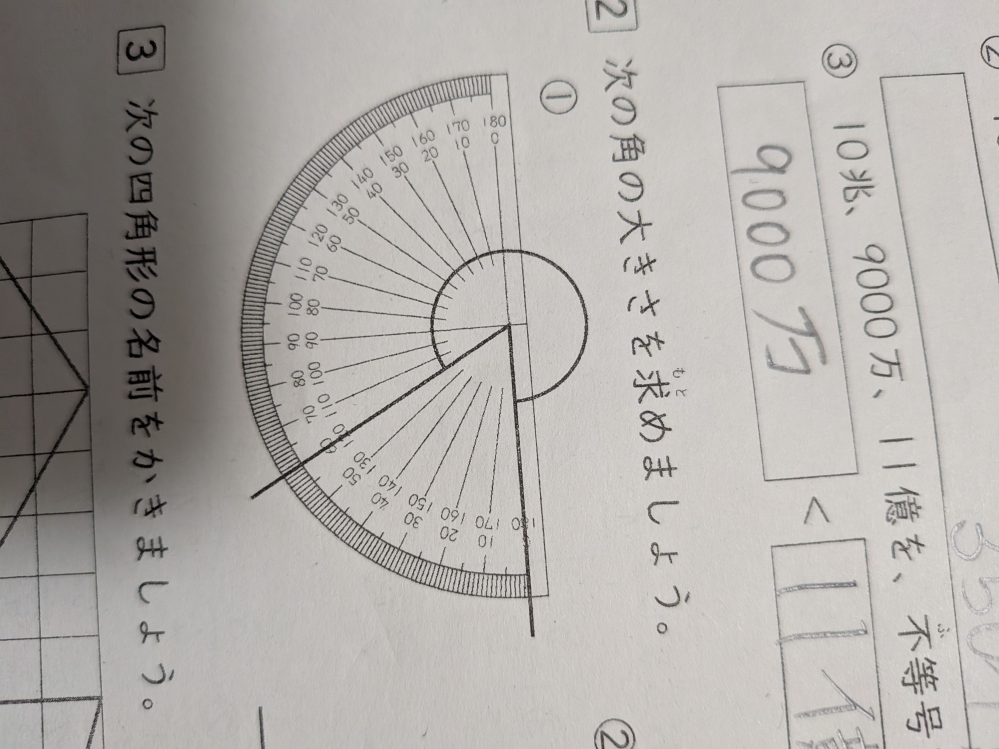 ②
③ 10兆、9000万、11億を、不等号
ふ
9000万 < 11億
2 次の角の大きさを求めましょう。
もと
① ②
180 170 160 150 140 130 120 110 100 90 80 70 60 50 40 30 20 10
0 10 20 30 40 50 60 70 80 90 100 110 120 130 140 150 160 170 180
3 次の四角形の名前をかきましょう。